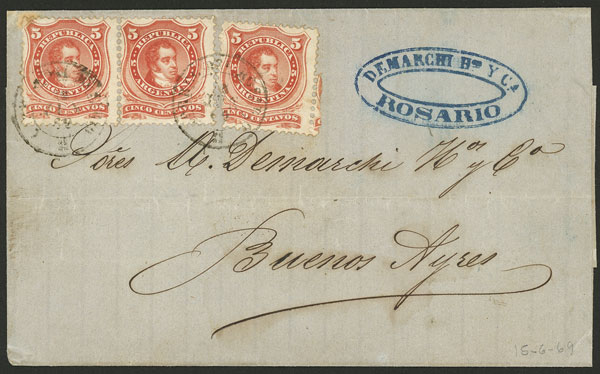 5 REPUBLICA 5
ARGENTINA
CINCO CENTAVOS
5 REPUBLICA 5
ARGENTINA
CINCO CENTAVOS
5 REPUBLICA 5
ARGENTINA
CINCO CENTAVOS
DEMARCHI Hos Y Ca
ROSARIO
Sōres M. Demarchi Hos y Ca
Buenos Ayres
15-6-69